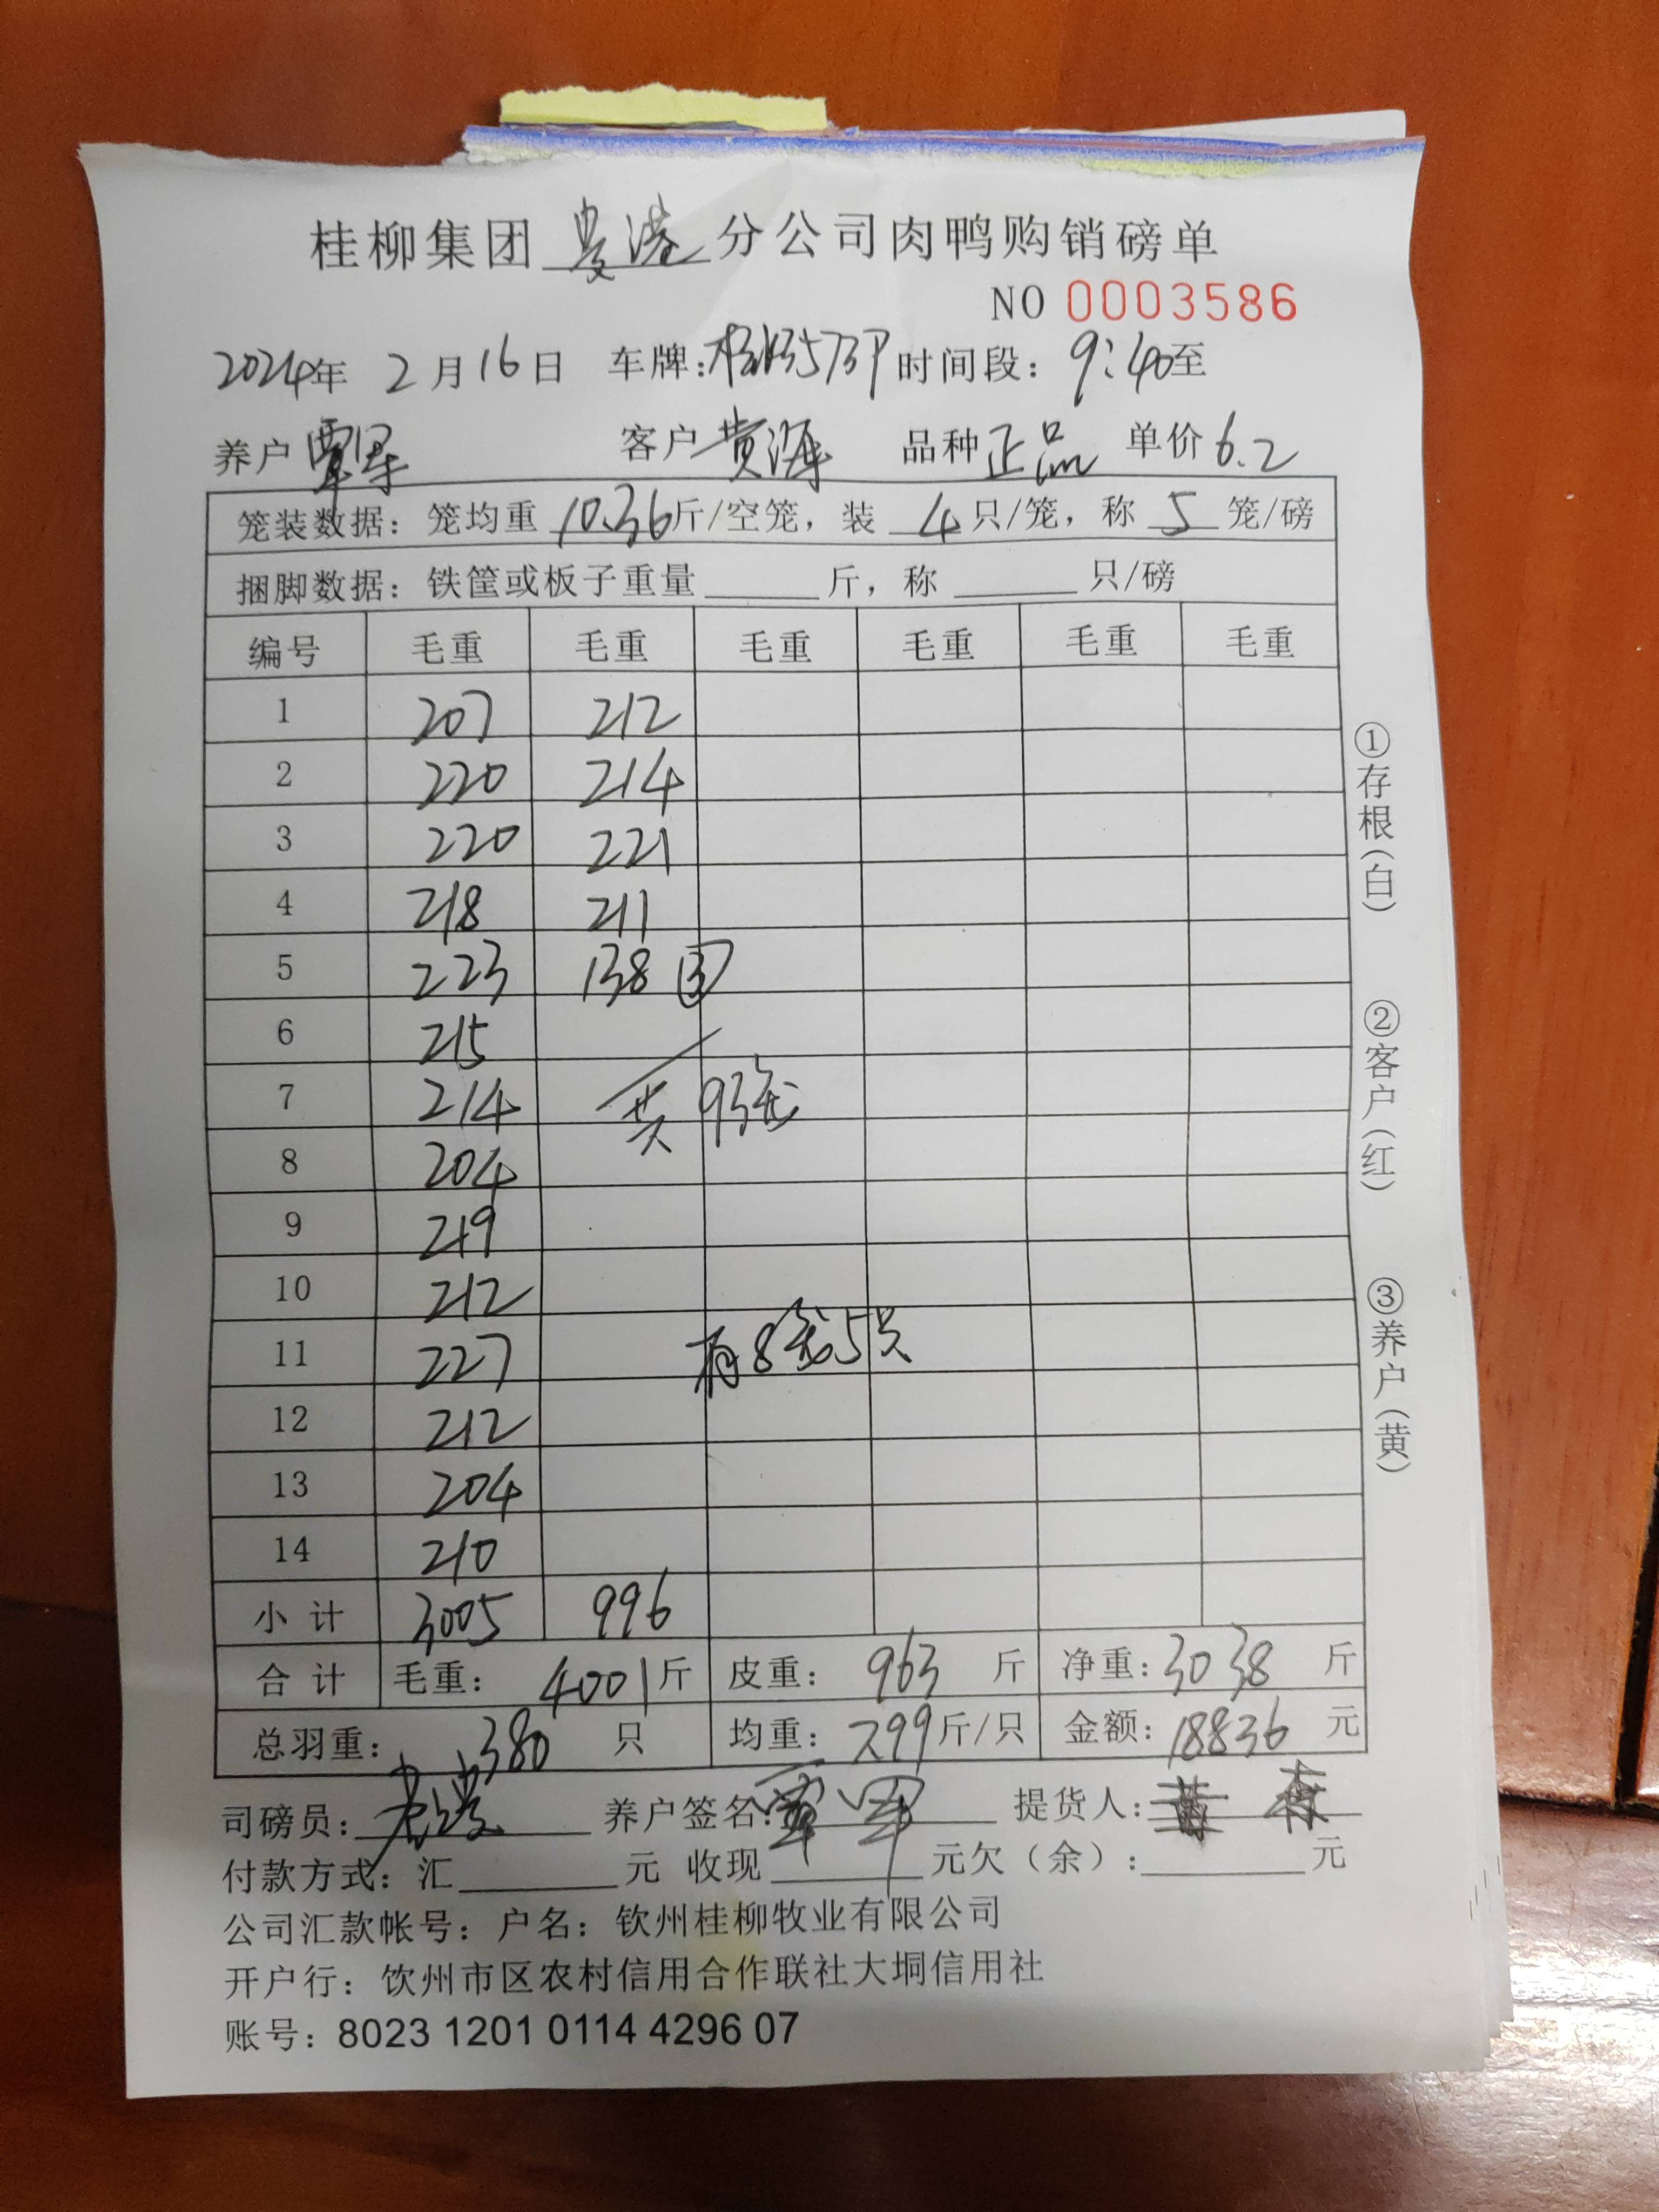 桂柳集团 贵港 分公司肉鸭购销磅单
NO 0003586
2024年 2月16日 车牌: 时间段: 9:40至
养户 覃军 客户 黄海 品种 正品 单价 6.2
笼装数据: 笼均重 10.36 斤/空笼, 装 4 只/笼, 称 5 笼/磅
捆脚数据: 铁筐或板子重量______斤, 称______只/磅
编号 毛重 毛重 毛重 毛重 毛重 毛重
1 207 212
2 220 214
3 220 221
4 218 211
5 223 138 ③
6 215
7 214 共93笼
8 204
9 219
10 212
11 227 有8笼5只
12 212
13 204
14 210
小计 3005 996
合计 毛重: 4001斤 皮重: 963 斤 净重: 3038 斤
总羽重: 1380 只 均重: 7.99斤/只 金额: 18836 元
司磅员: 养户签名: 覃军 提货人: 黄
付款方式: 汇______元 收现______元欠(余):______元
公司汇款帐号: 户名: 钦州桂柳牧业有限公司
开户行: 饮州市区农村信用合作联社大垌信用社
账号: 8023 1201 0114 4296 07
①存根(白)
②客户(红)
③养户(黄)